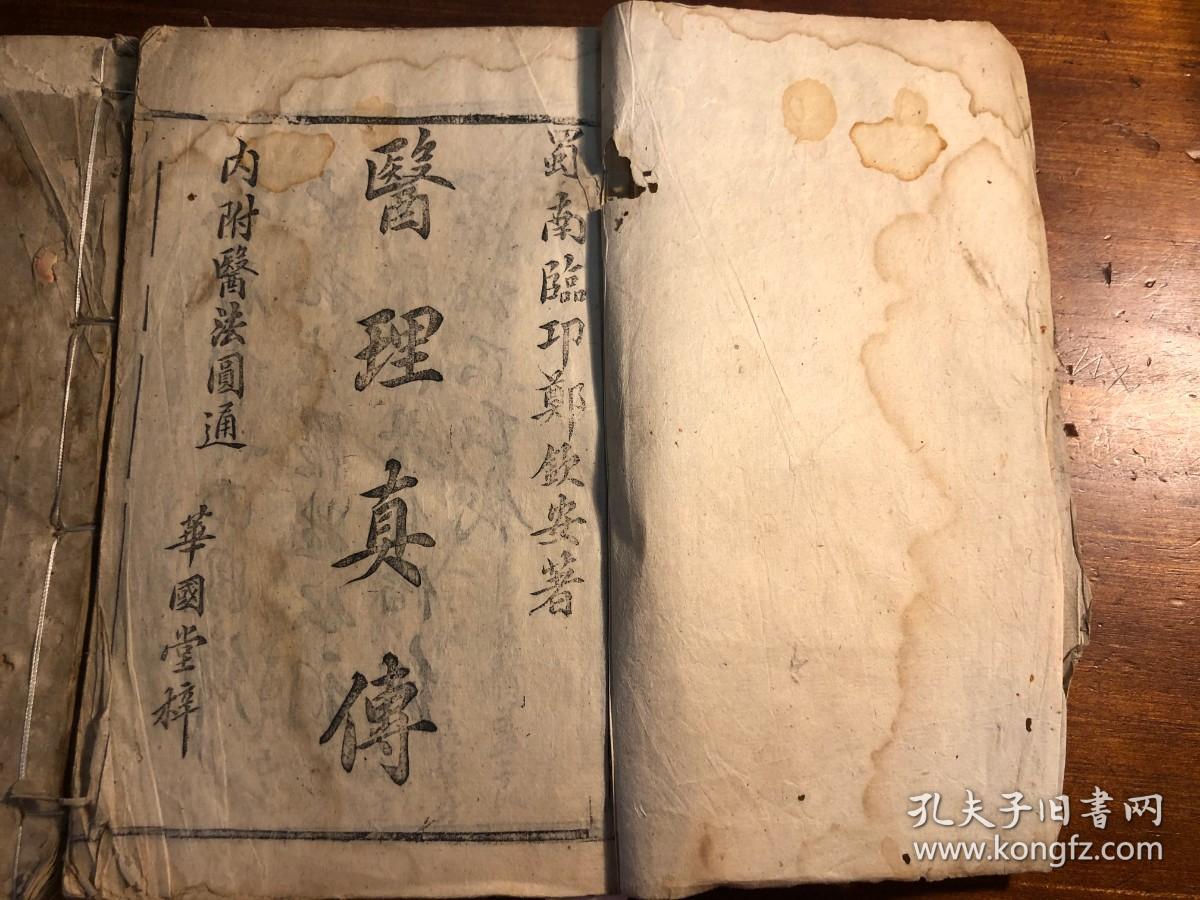 蜀南臨卭鄭欽安著
醫理真傳
內附醫法圓通
華國堂梓
孔夫子旧书网
www.kongfz.com